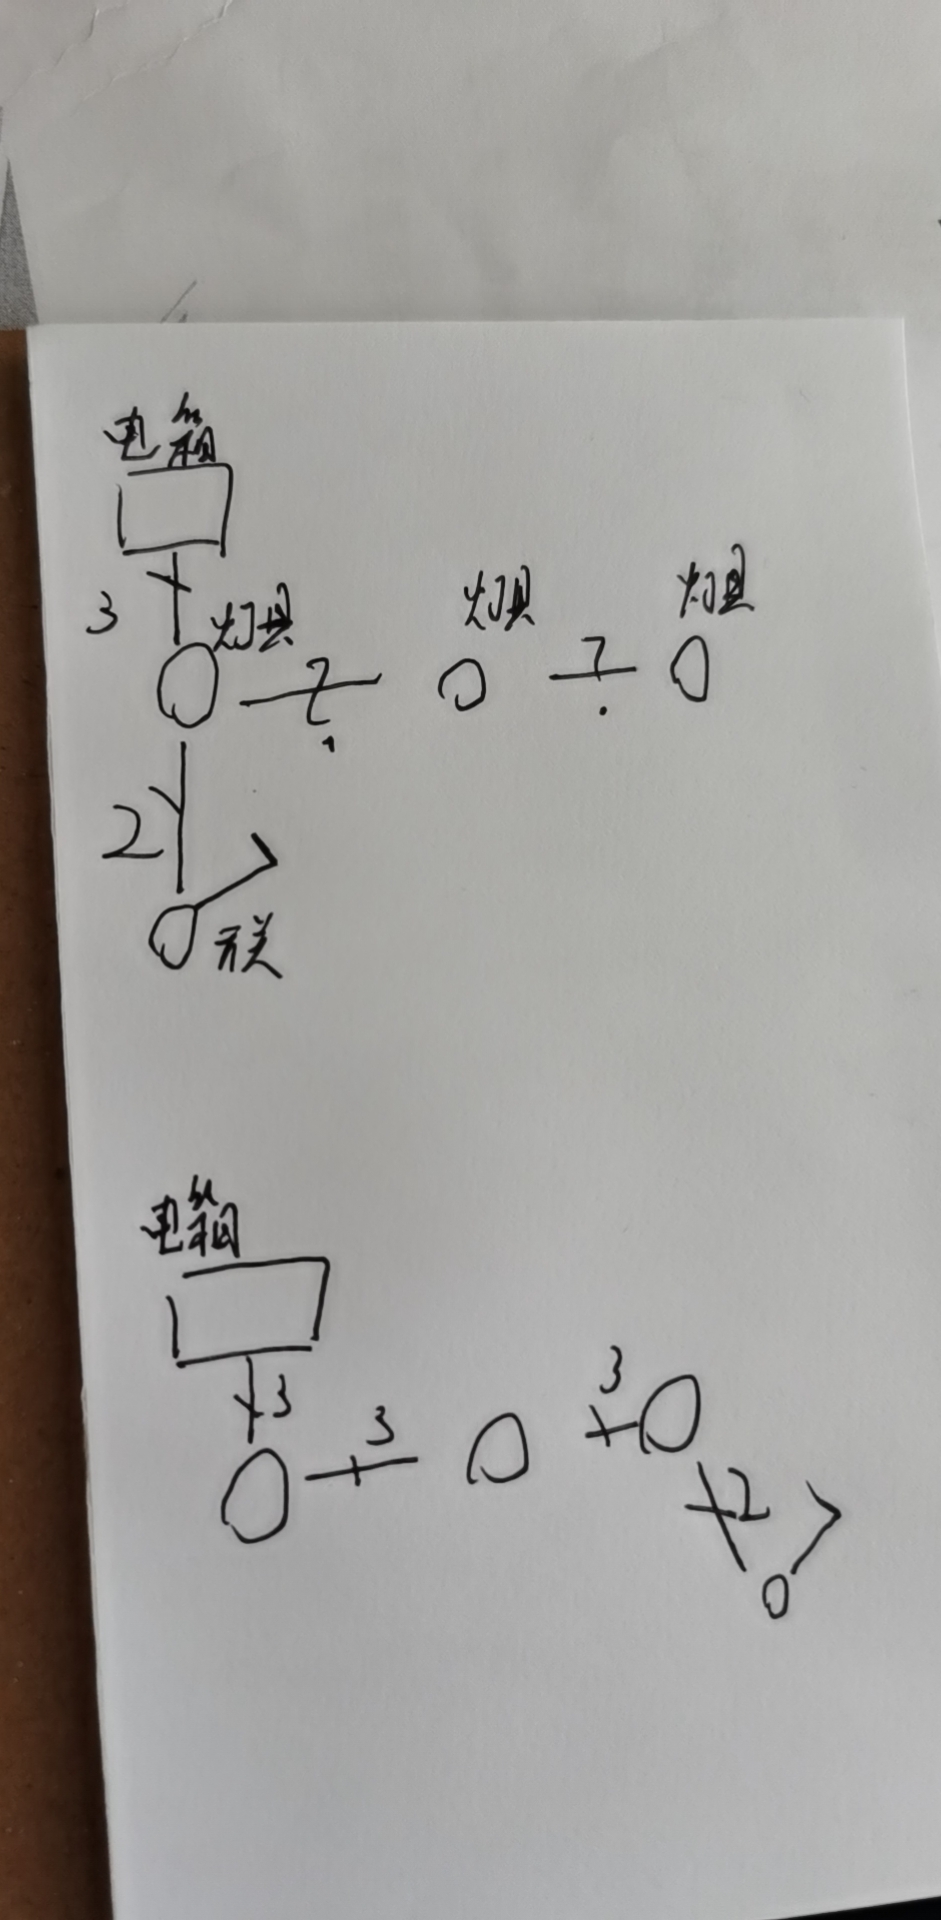 电箱
灯具
灯具
灯具
3
?
?
2
开关
电箱
3
3
3
2